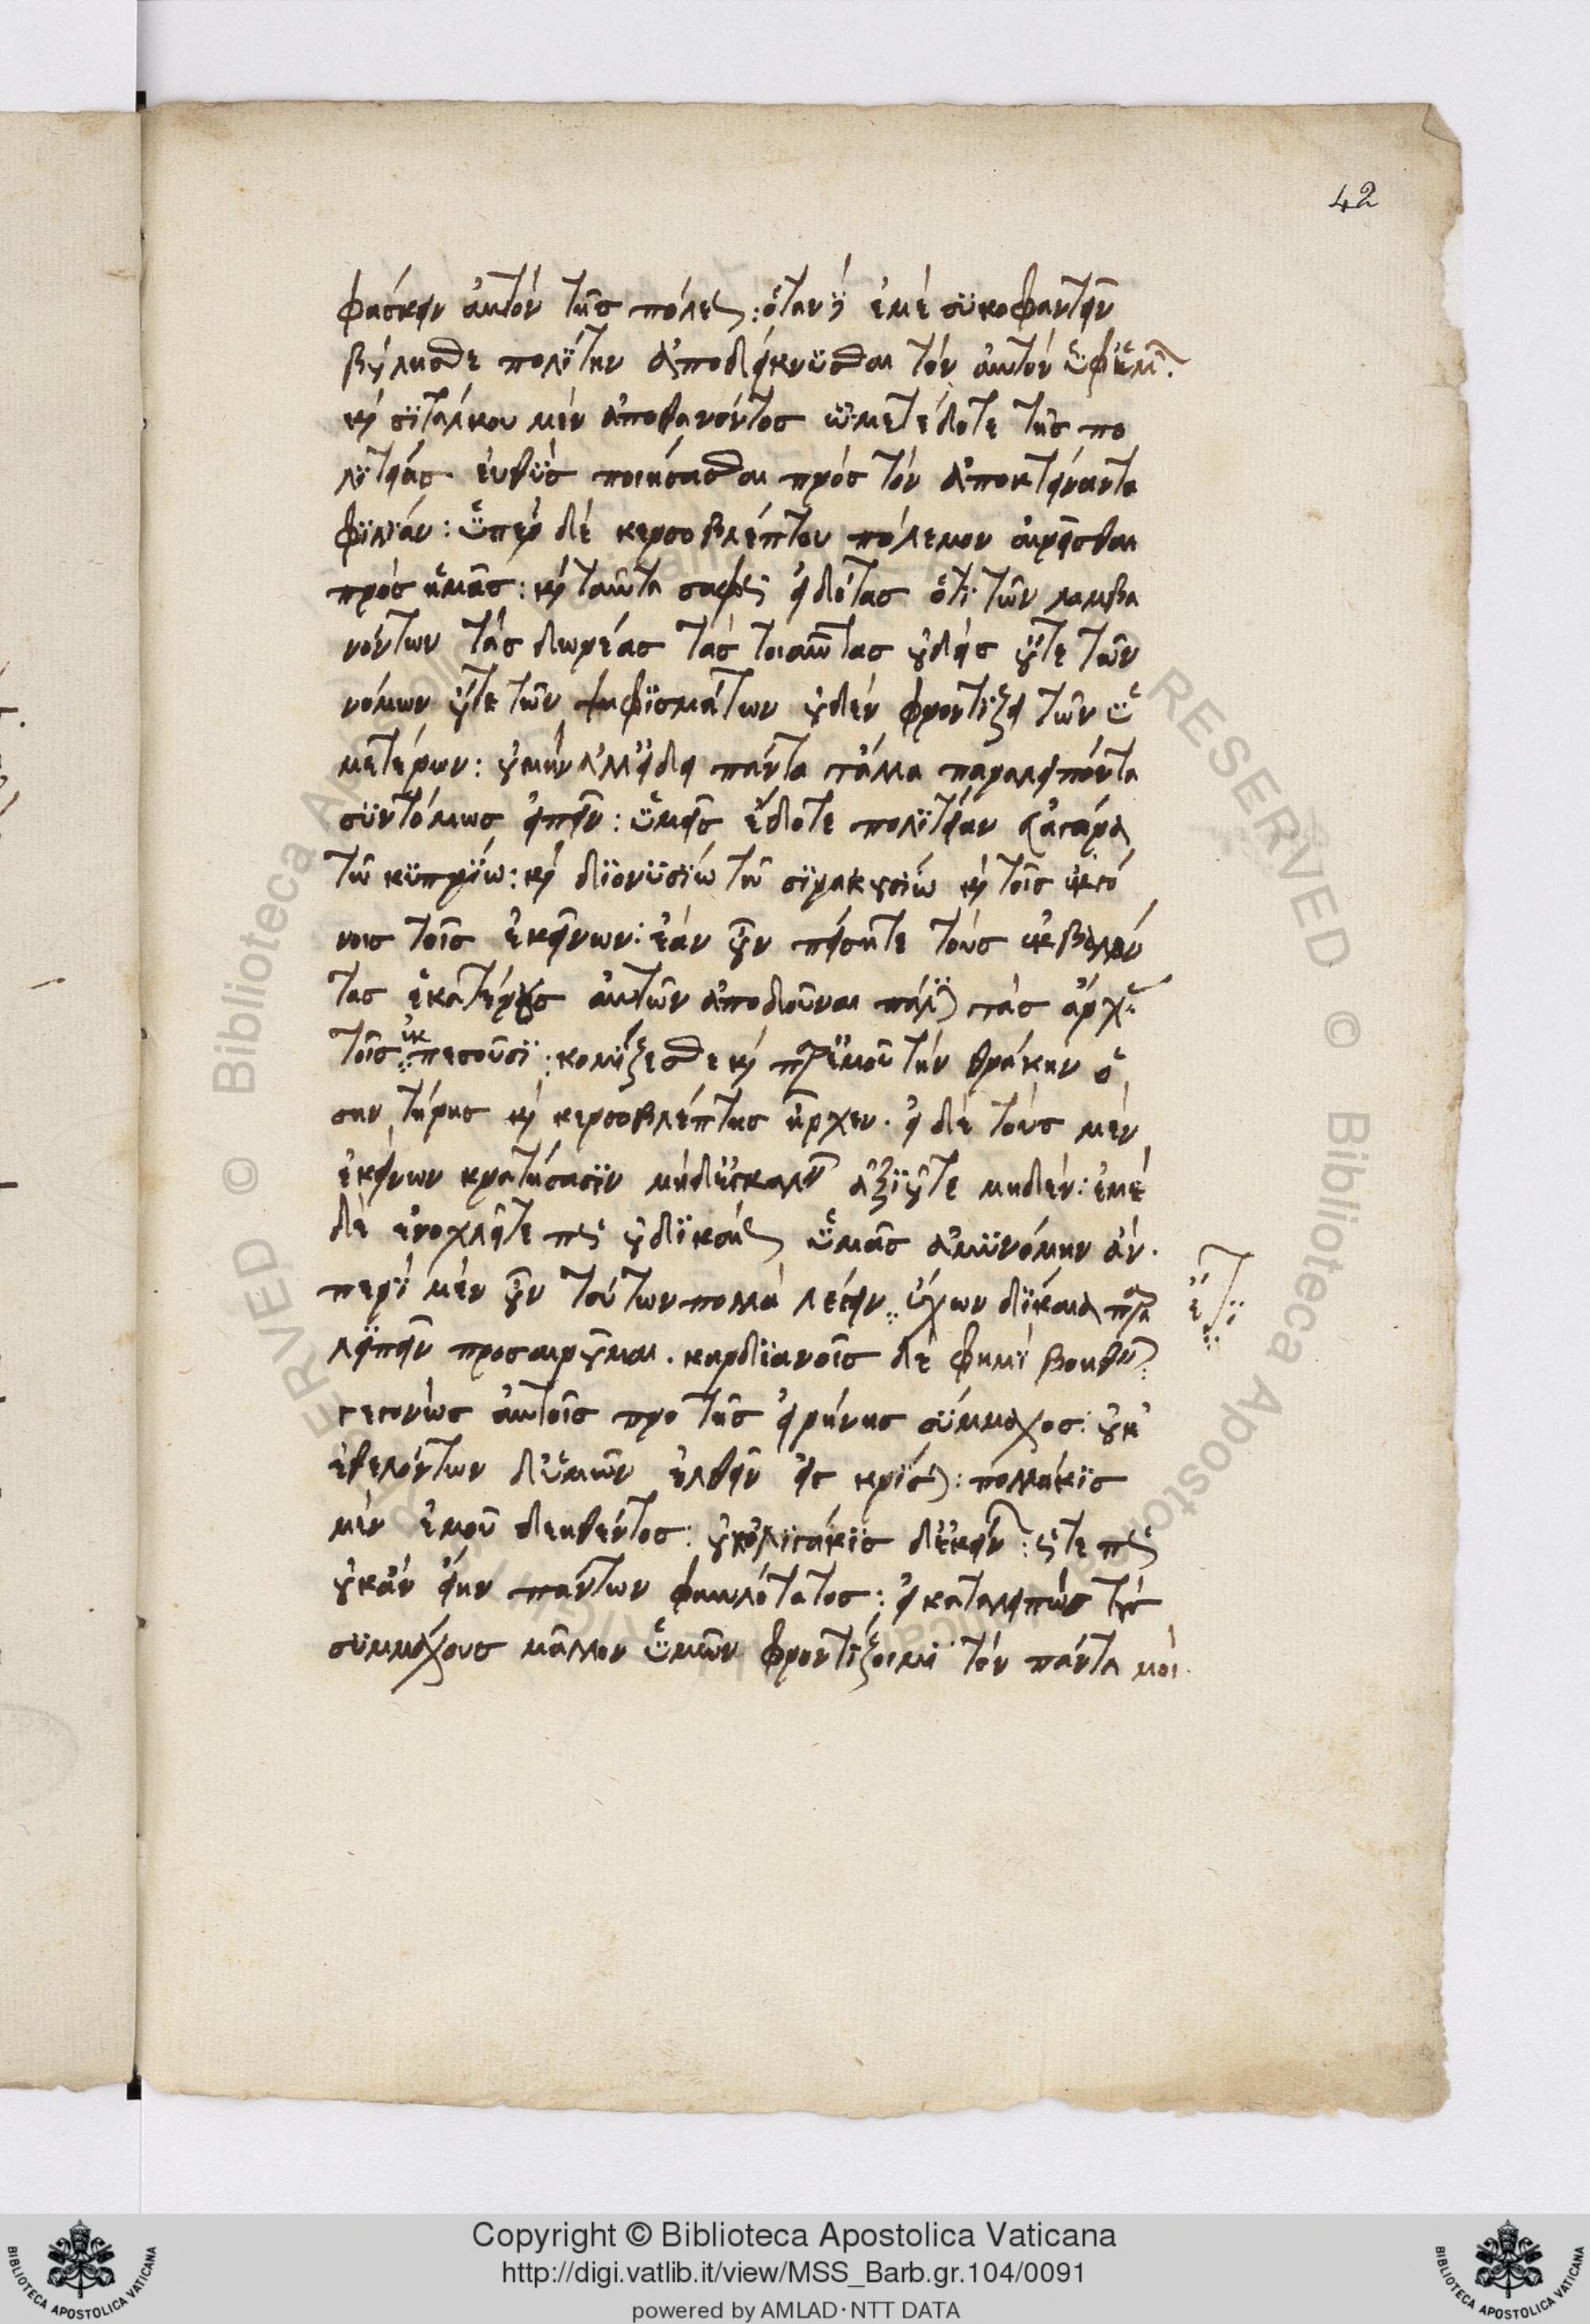 42
φάσκειν αὐτὸν τῆς πόλεως: ὅταν δ' ἐμὲ συκοφαντεῖν
βούλησθε πολίτην ἀποδείκνυσθαι τὸν αὐτὸν ὑφ' ἡμῶν.
καὶ σιτάλκου μὲν ἀποθανόντος ᾧ μετέδοτε τῆς πο
λιτείας εὐθὺς ποιήσασθαι πρὸς τὸν ἀποκτείναντα
φιλίαν: ὑπὲρ δὲ κερσοβλέπτου πόλεμον αἱρεῖσθαι
πρὸς ἡμᾶς: καὶ ταῦτα σαφῶς εἰδότας ὅτι τῶν λαμβα
νόντων τὰς δωρεὰς τὰς τοιαύτας οὐδεὶς οὔτε τῶν
νόμων οὔτε τῶν ψηφισμάτων οὐδὲν φροντίζει τῶν ὑ
μετέρων: οὐ μὴν ἀλλ' εἰ δεῖ πάντα τἄλλα παραλειπόντα
συντόμως εἰπεῖν: ὑμεῖς ἔδοτε πολιτείαν εὐαγόρᾳ
τῶ κυπρίω: καὶ διονυσίω τῶ συρακουσίω καὶ τοῖς ἐκγό
νοις τοῖς ἐκείνων: ἐὰν οὖν πείσητε τοὺς ἐκβαλόν
τας ἑκατέρους αὐτῶν ἀποδοῦναι πάλιν τὰς ἀρχὰς
τοῖς ἐκπεσοῦσι: κομίζεσθε καὶ παρ' ἐμοῦ τὴν θράκην ὅ
σην τήρης καὶ κερσοβλέπτης ἦρχεν. εἰ δὲ τοὺς μὲν
ἐκείνων κρατήσασιν μηδ' ἐγκαλεῖν ἀξιοῦτε μηδὲν: ἐμὲ
δὲ ἐνοχλεῖτε πῶς οὐ δικαίως ὑμᾶς ἀμυνοίμην ἄν.
περὶ μὲν οὖν τούτων πολλὰ λέγειν ἔχων δίκαια παρα
λιπεῖν προαιροῦμαι. καρδιανοῖς δὲ φημὶ βοηθεῖν
γεγονὼς αὐτοῖς πρὸ τῆς εἰρήνης σύμμαχος: οὐκ
ἐθελόντων δ' ὑμῶν ἐλθεῖν εἰς κρίσιν: πολλάκις
μὲν ἐμοῦ δεηθέντος: οὐκ ὀλιγάκις δ' ἐκείνων: ὥστε πῶς
οὐκ ἂν εἴην πάντων φαυλότατος: εἰ καταλειπὼν τοὺς
συμμάχους μᾶλλον ὑμῶν φροντίζοιμι τὸν πάντα μοι
ἔτι
Copyright © Biblioteca Apostolica Vaticana
http://digi.vatlib.it/view/MSS_Barb.gr.104/0091
powered by AMLAD·NTT DATA